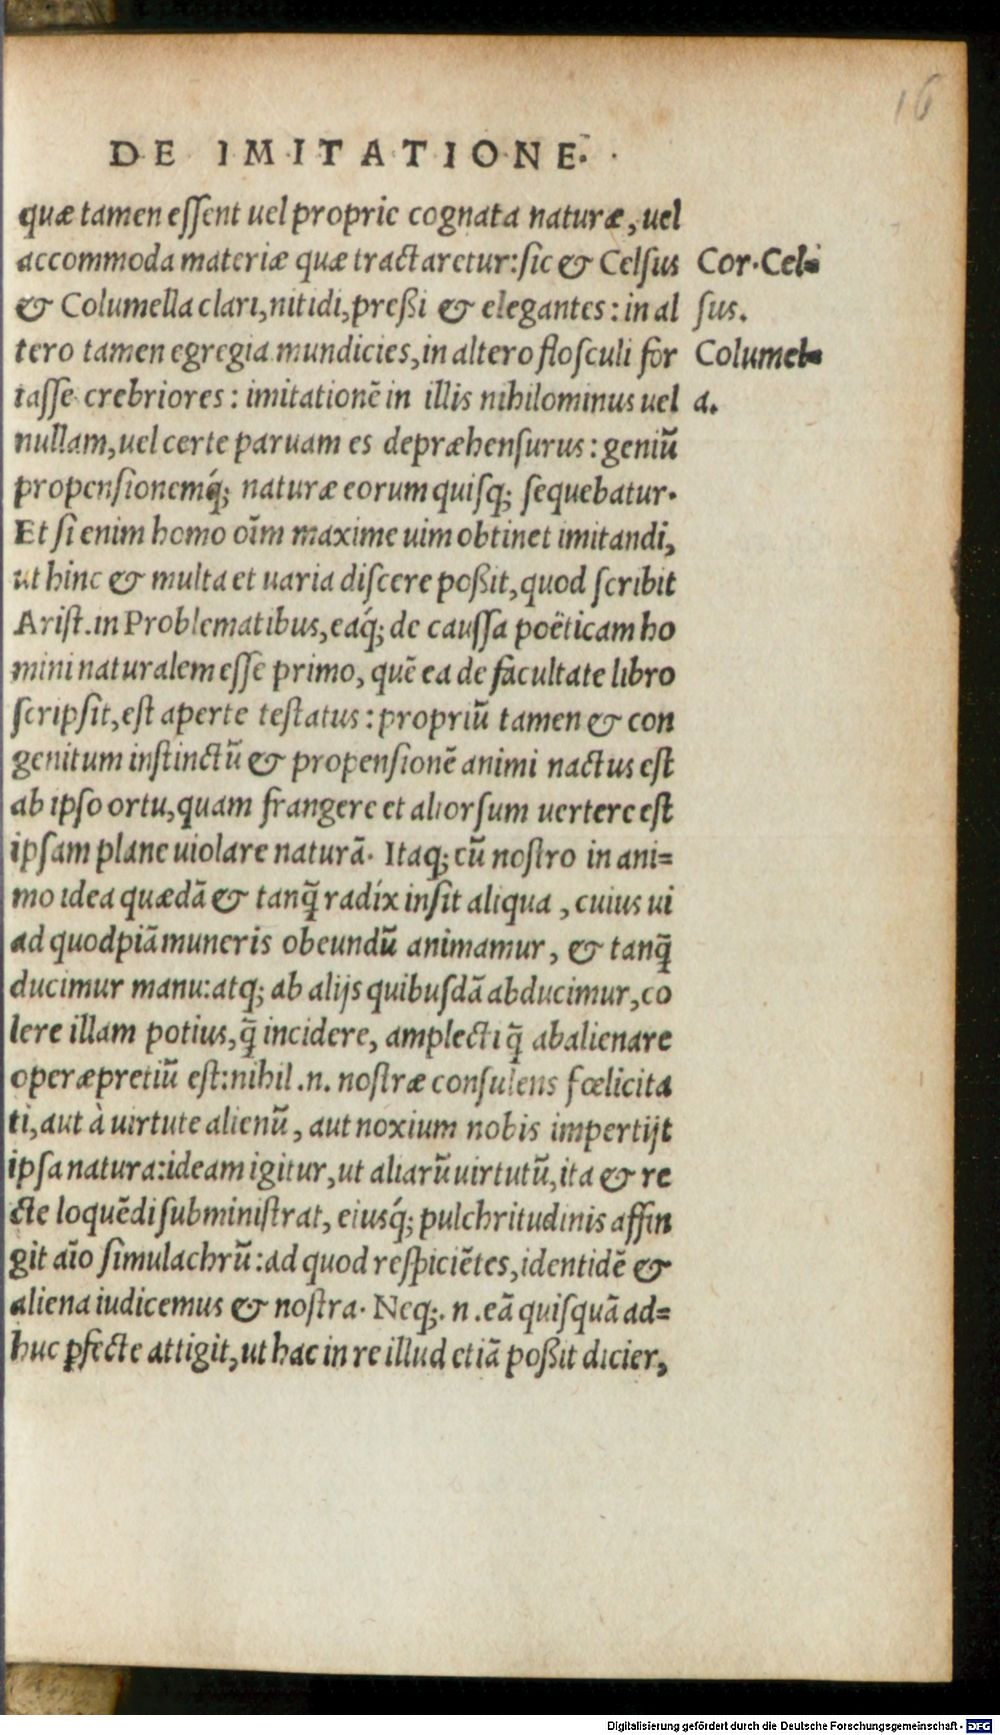 16
DE IMITATIONE.
quæ tamen eſſent uel proprie cognata naturæ, uel
accommoda materiæ quæ tractaretur: ſic & Celſus
Cor. Cel-
& Columella clari, nitidi, preßi & elegantes: in al
ſus.
tero tamen egregia mundicies, in altero floſculi for
Columel-
taſſe crebriores: imitationē in illis nihilominus uel
a.
nullam, uel certe paruam es depræhenſurus: geniū
propenſionemq́; naturæ eorum quiſq; ſequebatur.
Et ſi enim homo oīm maxime uim obtinet imitandi,
ut hinc & multa et uaria diſcere poßit, quod ſcribit
Ariſt. in Problematibus, eaq́; de cauſſa poëticam ho
mini naturalem eſſe primo, quē ea de facultate libro
ſcripſit, eſt aperte teſtatus: propriū tamen & con
genitum inſtinctū & propenſionē animi nactus eſt
ab ipſo ortu, quam frangere et aliorſum uertere eſt
ipſam plane uiolare naturā. Itaq; cū noſtro in ani=
mo idea quædā & tanq̄ radix inſit aliqua, cuius ui
ad quodpiā muneris obeundū animamur, & tanq̄
ducimur manu: atq; ab alijs quibuſdā abducimur, co
lere illam potius, q̄ incidere, amplecti q̄ abalienare
operæpretiū eſt: nihil .n. noſtræ conſulens fœlicita
ti, aut à uirtute alienū, aut noxium nobis impertijt
ipſa natura: ideam igitur, ut aliarū uirtutū, ita & re
cte loquēdi ſubminiſtrat, eiusq́; pulchritudinis affin
git aīo ſimulachrū: ad quod reſpiciētes, identidē &
aliena iudicemus & noſtra. Neq;. n. eā quiſquā ad=
huc ꝑfecte attigit, ut hac in re illud etiā poßit dicier,
Digitalisierung gefördert durch die Deutsche Forschungsgemeinschaft - DFG